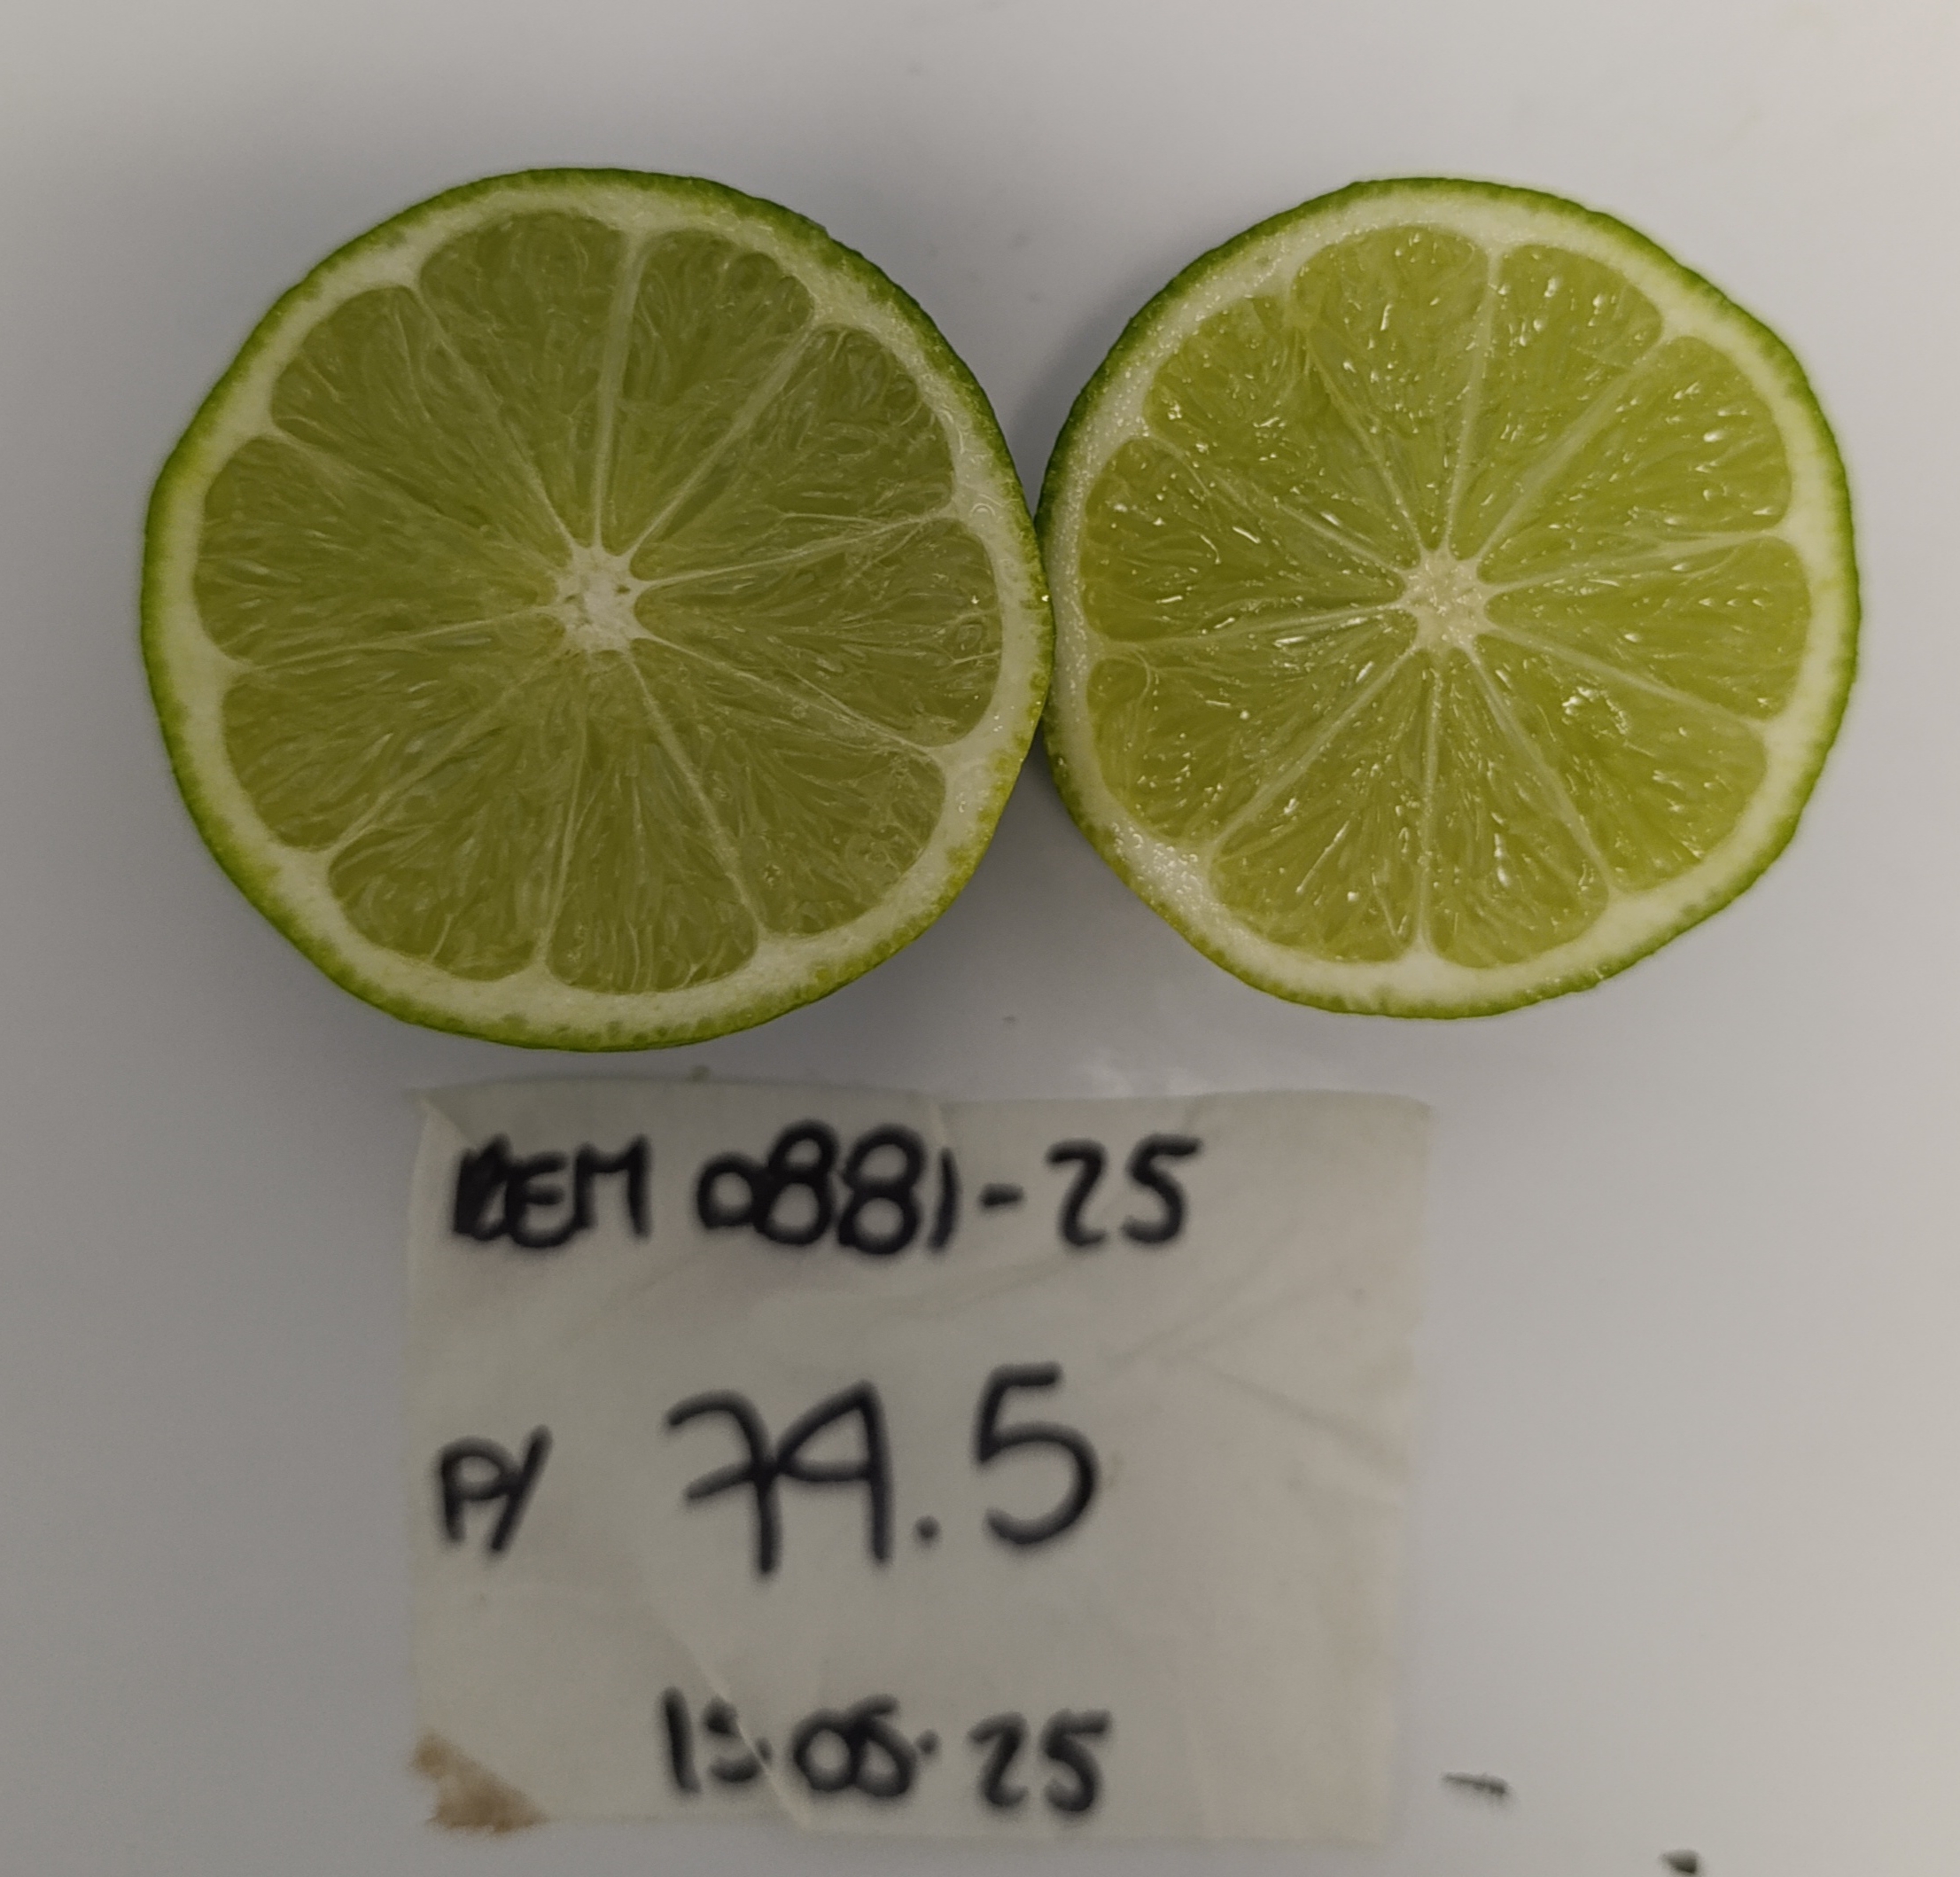 REM 0881-25
P/ 74.5
13.05.25